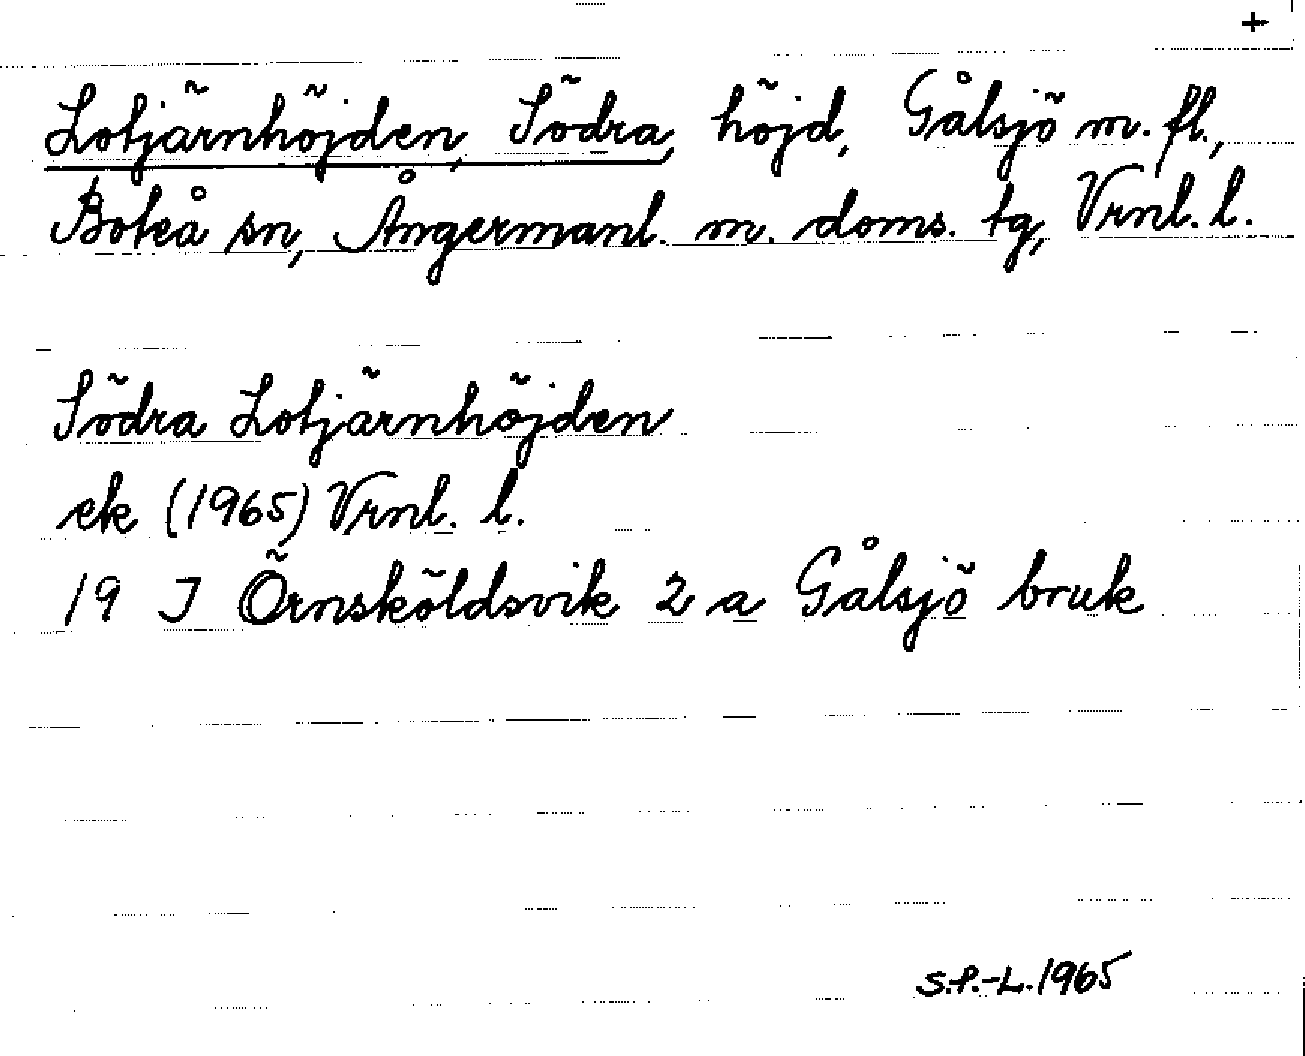 +
Lotjärnhöjden, Södra, höjd, Gålsjö m. fl.,
Boteå sn, Ångermanl. m. doms. tg, Vrnl. l.
Södra Lotjärnhöjden
ek (1965) Vrnl. l.
19 I Örnsköldsvik 2 a Gålsjö bruk
S.P.-L. 1965